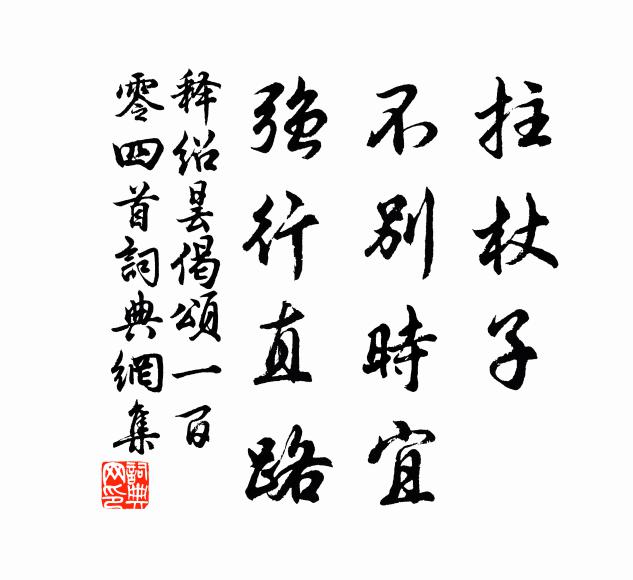 拄杖子
不别時宜
强行直路
释绍昙偈頌一百
零四首詞典網集
詞典
网印